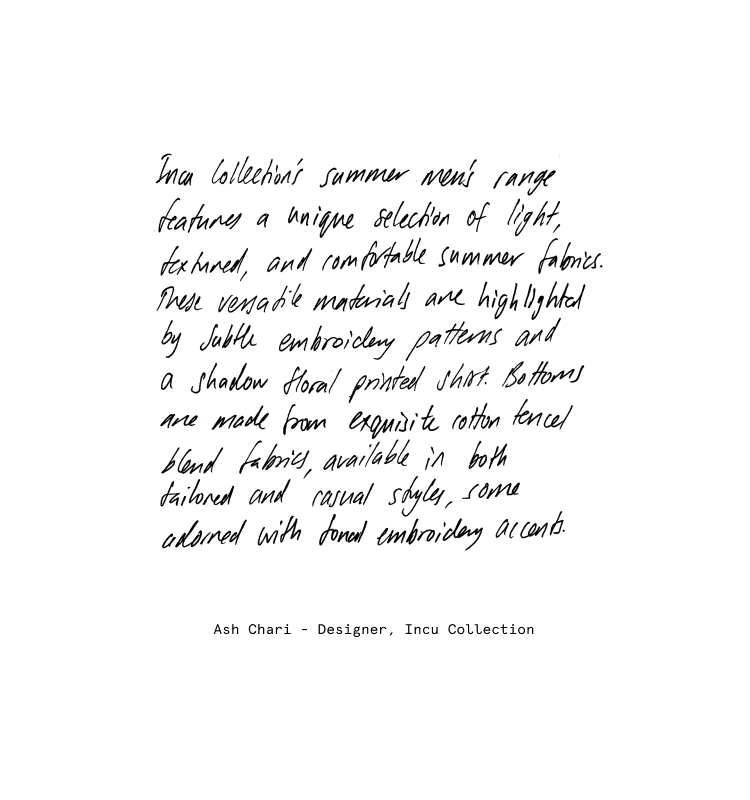 Incu Collection's summer men's range
features a unique selection of light,
textured, and comfortable summer fabrics.
These versatile materials are highlighted
by subtle embroidery patterns and
a shadow floral printed shirt. Bottoms
are made from exquisite cotton tencel
blend fabrics, available in both
tailored and casual styles, some
adorned with tonal embroidery accents.
Ash Chari - Designer, Incu Collection